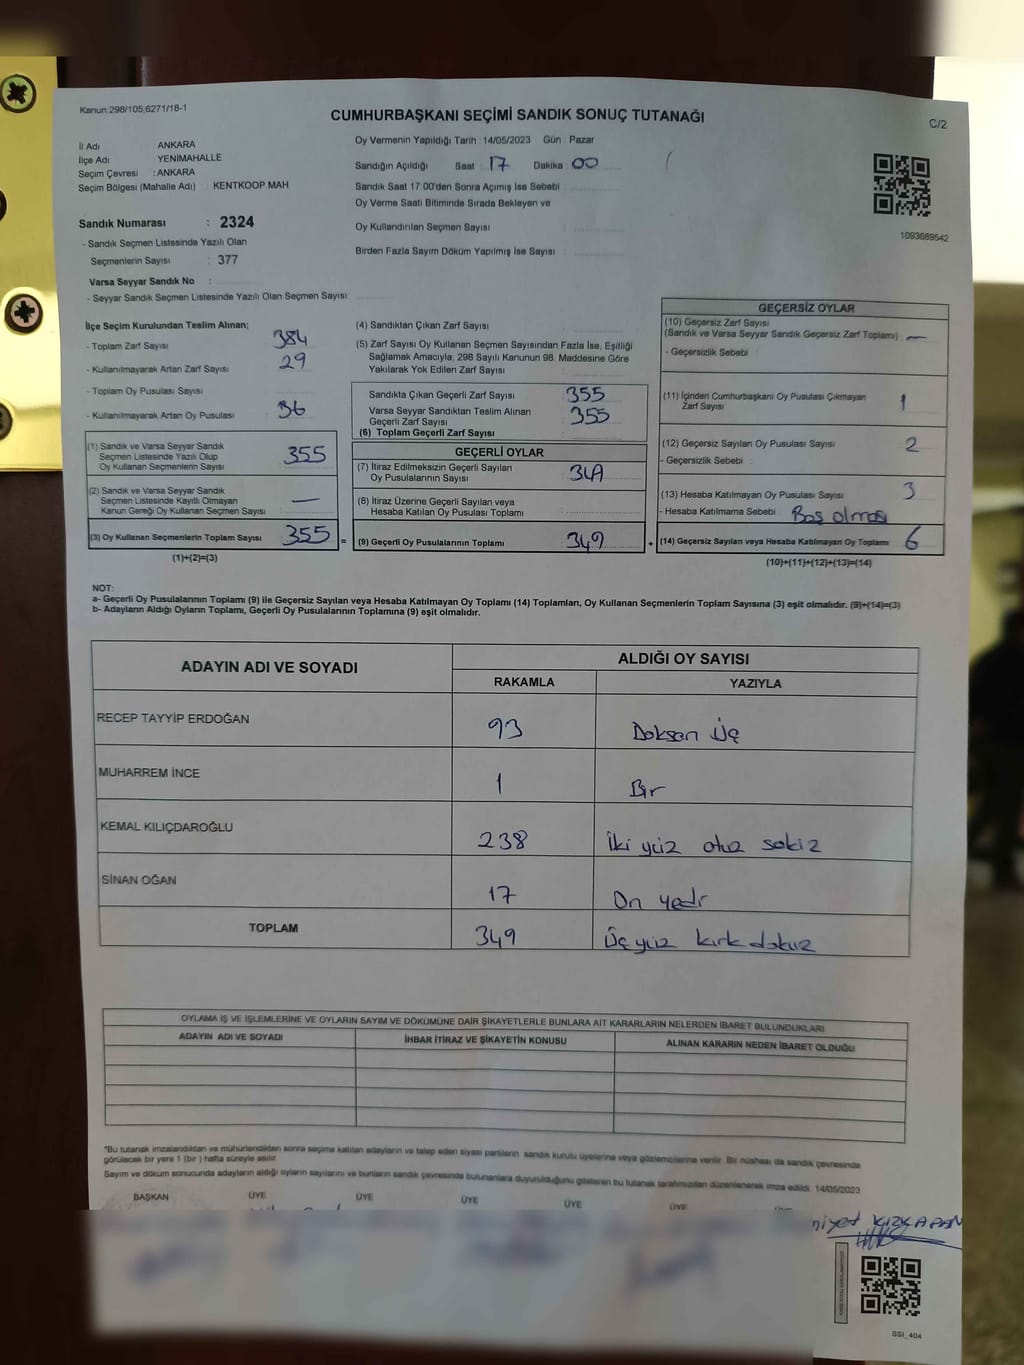 Kanun:298/105;6271/18-1
CUMHURBAŞKANI SEÇİMİ SANDIK SONUÇ TUTANAĞI
C/2
İl Adı ANKARA
İlçe Adı YENİMAHALLE
Seçim Çevresi : ANKARA
Seçim Bölgesi (Mahalle Adı) : KENTKOOP MAH
Oy Vermenin Yapıldığı Tarih : 14/05/2023 Gün : Pazar
Sandığın Açıldığı Saat : 17 Dakika : 00
Sandık Saat 17:00'den Sonra Açılmış İse Sebebi :
Oy Verme Saati Bitiminde Sırada Bekleyen ve
Oy Kullandırılan Seçmen Sayısı :
Birden Fazla Sayım Döküm Yapılmış İse Sayısı :
1093689542
Sandık Numarası : 2324
- Sandık Seçmen Listesinde Yazılı Olan
Seçmenlerin Sayısı : 377
Varsa Seyyar Sandık No :
- Seyyar Sandık Seçmen Listesinde Yazılı Olan Seçmen Sayısı :
İlçe Seçim Kurulundan Teslim Alınan;
- Toplam Zarf Sayısı : 384
- Kullanılmayarak Artan Zarf Sayısı : 29
- Toplam Oy Pusulası Sayısı :
- Kullanılmayarak Artan Oy Pusulası : 36
(1) Sandık ve Varsa Seyyar Sandık
Seçmen Listesinde Yazılı Olup
Oy Kullanan Seçmenlerin Sayısı : 355
(2) Sandık ve Varsa Seyyar Sandık
Seçmen Listesinde Kayıtlı Olmayan
Kanun Gereği Oy Kullanan Seçmen Sayısı : —
(3) Oy Kullanan Seçmenlerin Toplam Sayısı : 355 =
(1)+(2)=(3)
(4) Sandıktan Çıkan Zarf Sayısı :
(5) Zarf Sayısı Oy Kullanan Seçmen Sayısından Fazla İse, Eşitliği
Sağlamak Amacıyla, 298 Sayılı Kanunun 98. Maddesine Göre
Yakılarak Yok Edilen Zarf Sayısı :
Sandıkta Çıkan Geçerli Zarf Sayısı : 355
Varsa Seyyar Sandıktan Teslim Alınan
Geçerli Zarf Sayısı : 355
(6) Toplam Geçerli Zarf Sayısı :
GEÇERLİ OYLAR
(7) İtiraz Edilmeksizin Geçerli Sayılan
Oy Pusulalarının Sayısı : 349
(8) İtiraz Üzerine Geçerli Sayılan veya
Hesaba Katılan Oy Pusulası Toplamı :
(9) Geçerli Oy Pusulalarının Toplamı : 349 +
GEÇERSİZ OYLAR
(10) Geçersiz Zarf Sayısı
(Sandık ve Varsa Seyyar Sandık Geçersiz Zarf Toplamı) : —
- Geçersizlik Sebebi :
(11) İçinden Cumhurbaşkanı Oy Pusulası Çıkmayan
Zarf Sayısı : 1
(12) Geçersiz Sayılan Oy Pusulası Sayısı : 2
- Geçersizlik Sebebi :
(13) Hesaba Katılmayan Oy Pusulası Sayısı : 3
- Hesaba Katılmama Sebebi : Boş olması
(14) Geçersiz Sayılan veya Hesaba Katılmayan Oy Toplamı : 6
(10)+(11)+(12)+(13)=(14)
NOT:
a- Geçerli Oy Pusulalarının Toplamı (9) ile Geçersiz Sayılan veya Hesaba Katılmayan Oy Toplamı (14) Toplamları, Oy Kullanan Seçmenlerin Toplam Sayısına (3) eşit olmalıdır. (9)+(14)=(3)
b- Adayların Aldığı Oyların Toplamı, Geçerli Oy Pusulalarının Toplamına (9) eşit olmalıdır.
ADAYIN ADI VE SOYADI ALDIĞI OY SAYISI
RAKAMLA YAZIYLA
RECEP TAYYİP ERDOĞAN 93 Doksan Üç
MUHARREM İNCE 1 Bir
KEMAL KILIÇDAROĞLU 238 İki yüz otuz sekiz
SİNAN OĞAN 17 On yedi
TOPLAM 349 Üç yüz kırk dokuz
OYLAMA İŞ VE İŞLEMLERİNE VE OYLARIN SAYIM VE DÖKÜMÜNE DAİR ŞİKAYETLERLE BUNLARA AİT KARARLARIN NELERDEN İBARET BULUNDUKLARI
ADAYIN ADI VE SOYADI İHBAR İTİRAZ VE ŞİKAYETİN KONUSU ALINAN KARARIN NEDEN İBARET OLDUĞU
*Bu tutanak imzalandıktan ve mühürlendikten sonra seçime katılan adayların ve talep eden siyasi partilerin sandık kurulu üyelerine veya gözlemcilerine verilir. Bir nüshası da sandık çevresinde
görülecek bir yere 1 (bir ) hafta süreyle asılır.
Sayım ve döküm sonucunda adayların aldığı oyların sayılarını ve bunların sandık çevresinde bulunanlara duyurulduğunu gösteren bu tutanak tarafımızdan düzenlenerek imza edildi. 14/05/2023
BAŞKAN ÜYE ÜYE ÜYE ÜYE ÜYE
KIZKAPAN
SSI_404